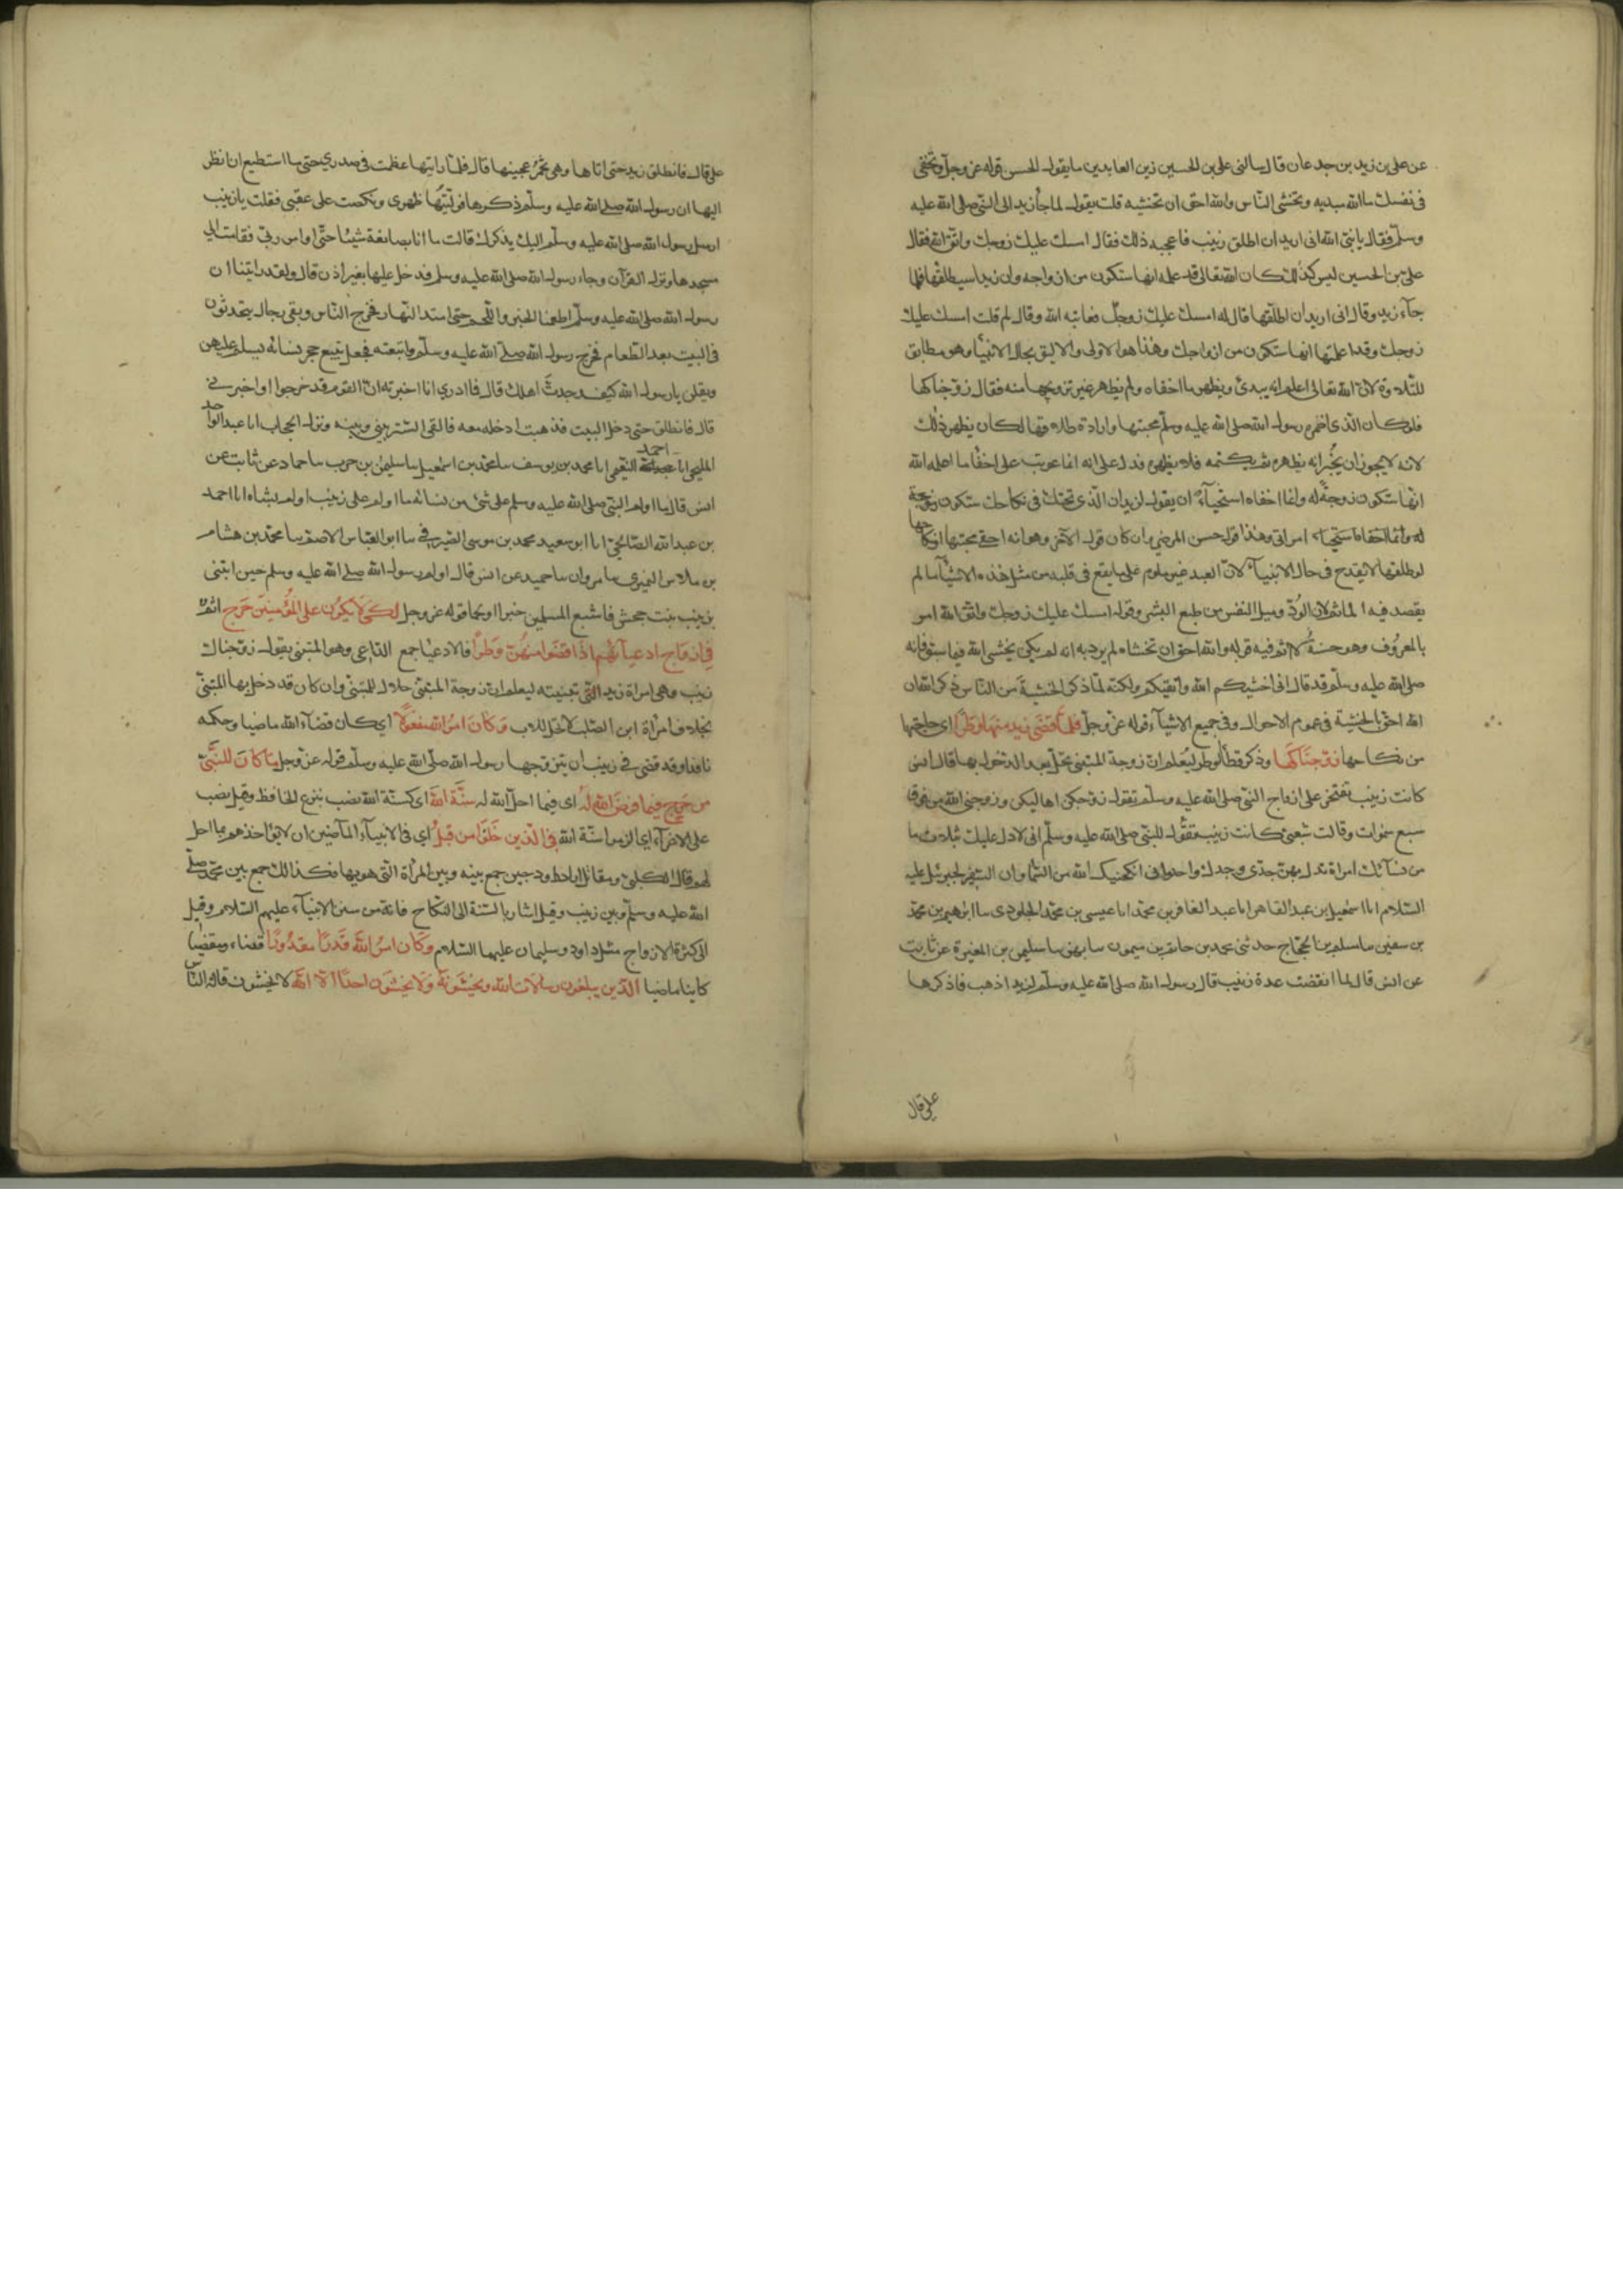 عن علي بن زيد بن جدعان قال سالني علي بن الحسين زين العابدين ما يقول الحسن في قوله عز وجل وتخفي
في نفسك ما الله مبديه وتخشى الناس والله احق ان تخشيه قلت يقول لما جاء زيد الى النبي صلى الله عليه
وسلم فقال يا نبي الله اني اريد ان اطلق زينب فاعجبه ذلك فقال امسك عليك زوجك واتق الله فقال
علي بن الحسين ليس كذلك كان الله تعالى قد علمه انها ستكون من ازواجه وان زيدا سيطلقها فلما
جآء زيد وقال اني اريد ان اطلقها قال له امسك عليك زوجك فعاتبه الله وقال لم قلت امسك عليك
زوجك وقد اعلمتها انها ستكون من ازواجك وهذا هو الاولى والاليق بحال الانبيا وهو مطابق
للتلاوة لان الله تعالى اعلم انه يبدئ ويظهر ما اخفاه ولم يظهر غير تزويجها منه فقال زوجناكها
فلو كان الذي اضمره رسول الله صلى الله عليه وسلم محبتها وارادة طلاقها لكان يظهر ذلك
لانه لا يجوز ان يخبر انه يظهره ثم يكتمه فلا يظهره فدل على انه انما عوتب على اخفا ما اعلمه الله
انها ستكون زوجة له وانما اخفاه استحيآء ان يقول لزيد ان الذي تحتك في نكاحك ستكون زوجة
له وانما اخفاه استحياء امراتي وهذا قول حسن المرضي وان كان قول الآخر وهو انه اخفى محبتها او نكاحها
لو طلقها لا يقدح في حال الانبيآء لان العبد غير ملوم على ما يقع في قلبه من مثل هذه الاشيآء ما لم
يقصد فيه الماثم لان الود وميل النفس من طبع البشر وقوله امسك عليك زوجك واتق الله امر
بالمعروف وهو حسنة لا اثم فيه قوله والله احق ان تخشاه لم يرد به انه لم يكن يخشى الله فيما سبق فانه
صلى الله عليه وسلم قد قال اني اخشيكم الله واتقيكم ولكنه لما ذكر الخشية من الناس ذكر الله ان
الله احق بالخشية في عموم الاحوال وفي جميع الاشيآء قوله عز وجل فلما قضى زيد منها وطرا اي حاجتها
من نكاحها زوجناكها وذكر قضآ الوطر ليعلم ان زوجة المتبنى تحل بعد الدخول بها قال انس
كانت زينب تفتخر على ازواج النبي صلى الله عليه وسلم تقول زوجكن اهاليكن وزوجني الله من فوق
سبع سموات وقالت شعبى كانت زينب تقول للنبي صلى الله عليه وسلم اني لادل عليك بثلاث ما
من نسآئك امراة تدل بهن جدي وجدك واحد واني انكحنيك الله من السما وان السفير لجبرئيل عليه
السلام انا اسمعيل بن عبد القاهر انا عبد الغافر بن محمد انا عيسى بن محمد الجلودي سا ابرهيم بن محمد
بن سفين سا مسلم بن الحجاج حدثني محمد بن حاتم بن ميمون سا بهز سا سليمن بن المغيرة عن ثابت
عن انس قال لما انقضت عدة زينب قال رسول الله صلى الله عليه وسلم لزيد اذهب فاذكرها
علي قال
علي قال فانطلق زيد حتى اتاها وهي تخمر عجينها قال فلما رايتها عظمت في صدري حتى ما استطيع ان انظر
اليها ان رسول الله صلى الله عليه وسلم ذكرها فوليتها ظهري ونكصت على عقبي فقلت يا زينب
ارسل رسول الله صلى الله عليه وسلم اليك يذكرك قالت ما انا بصانعة شيئا حتى اوامر ربي فقامت الى
مسجدها ونزل القرآن وجاء رسول الله صلى الله عليه وسلم فدخل عليها بغير اذن قال ولقد رايتنا ان
رسول الله صلى الله عليه وسلم اطعمنا الخبز واللحم حتى امتد النهار فخرج الناس وبقي رجال يتحدثون
في البيت بعد الطعام فخرج رسول الله صلى الله عليه وسلم واتبعته فجعل يتبع حجر نسائه يسلم عليهن
ويقلن يا رسول الله كيف وجدت اهلك قال فما ادري انا اخبرته ان القوم قد خرجوا او اخبرني
قال فانطلق حتى دخل البيت فذهبت ادخل معه فالقى الستر بيني وبينه ونزل الحجاب انا عبد الواحد
المليحي انا احمد النعيمي انا محمد بن يوسف سا محمد بن اسمعيل سا سليمن بن حرب سا حماد عن ثابت عن
انس قال ما اولم النبي صلى الله عليه وسلم على شئ من نسائه ما اولم على زينب اولم بشاه انا احمد
بن عبد الله الصالحي انا ابو سعيد محمد بن موسى الصيرفي سا ابو العباس الاصم سا محمد بن هشام
بن ملاس النميري سا مروان سا حميد عن انس قال اولم رسول الله صلى الله عليه وسلم حين ابتنى
بزينب بنت جحش فاشبع المسلمين خبزا ولحما قوله عز وجل لكي لا يكون على المؤمنين حرج اثم
في ازواج ادعيآئهم اذا قضوا منهن وطرا فالادعيا جمع الداعي وهو المتبني يقول زوجناك
زينب وهي امراة زيد التي تبنيته ليعلم ان زوجة المتبني حلال للمتبني وان كان قد دخل بها المتبني
بخلاف امراة ابن الصلب لا تحل للاب وكان امر الله مفعولا اي كان قضآء الله ماضيا وحكمه
نافذا وقد قضى في زينب ان يتزوجها رسول الله صلى الله عليه وسلم قوله عز وجل ما كان للنبي
من حرج فيما فرض الله له اي فيما احل الله له سنة الله اي كسنة الله نصب بنزع الخافظ وقيل نصب
على الاغرآء اي الزموا سنة الله في الذين خلوا من قبل اي في الانبيآء الماضين ان لا يؤاخذهم بما احل
لهم قال الكلبي ومقاتل اراد داود حين جمع بينه وبين المراة التي هويها فكذلك جمع بين محمد صلى
الله عليه وسلم وبين زينب وقيل اشار بالسنة الى النكاح فانه من سنن الانبيآء عليهم السلام وقيل
الى كثرة الازواج مثل داود وسليمان عليهما السلام وكان امر الله قدرا مقدورا قضاء مقضيا
كاينا ماضيا الذين يبلغون رسالات الله ويخشونه ولا يخشون احدا الا الله لا يخشون قالة الناس